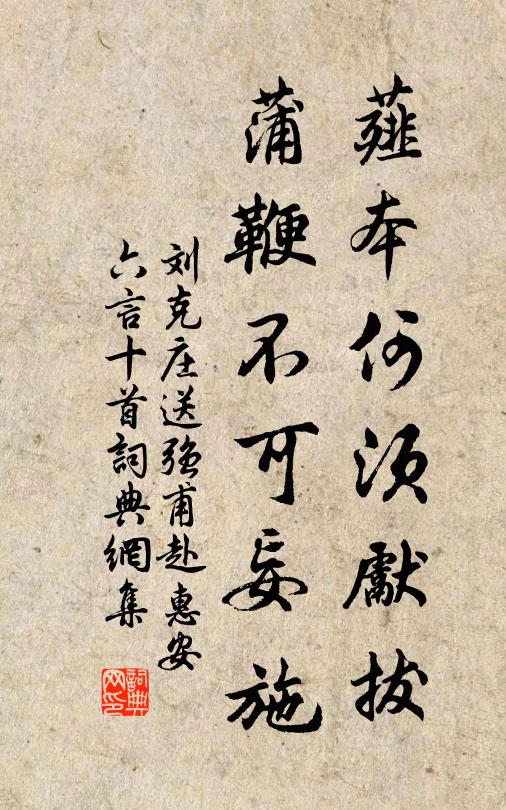 薤本何須獻拔
蒲鞭不可妄施
刘克庄送強甫赴惠安
六言十首詞典網集
詞典网印